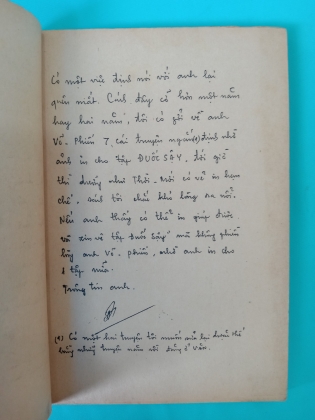 Có một việc định nói với anh lại
quên mất. Cách đây cỡ hơn một năm
hay hai năm, tôi có gởi về anh
Võ. Phiến 7 cái truyện ngắn(*) định nhờ
ảnh in cho tập ĐUỐC SẬY, tới giờ
thì dường như Thời. Mới có vẻ in hạn
chế, sách tôi chắc khó lòng ra nổi.
Nếu anh thấy có thể in giúp được
xin về tập Đuốc Sậy mà không phiền
lòng anh Võ. Phiến, nhờ anh in cho
1 tập nữa.
Trông tin anh.
(*) Có một hai truyện tôi muốn rút lại thay thế
bằng những truyện năm rồi đăng ở Văn.